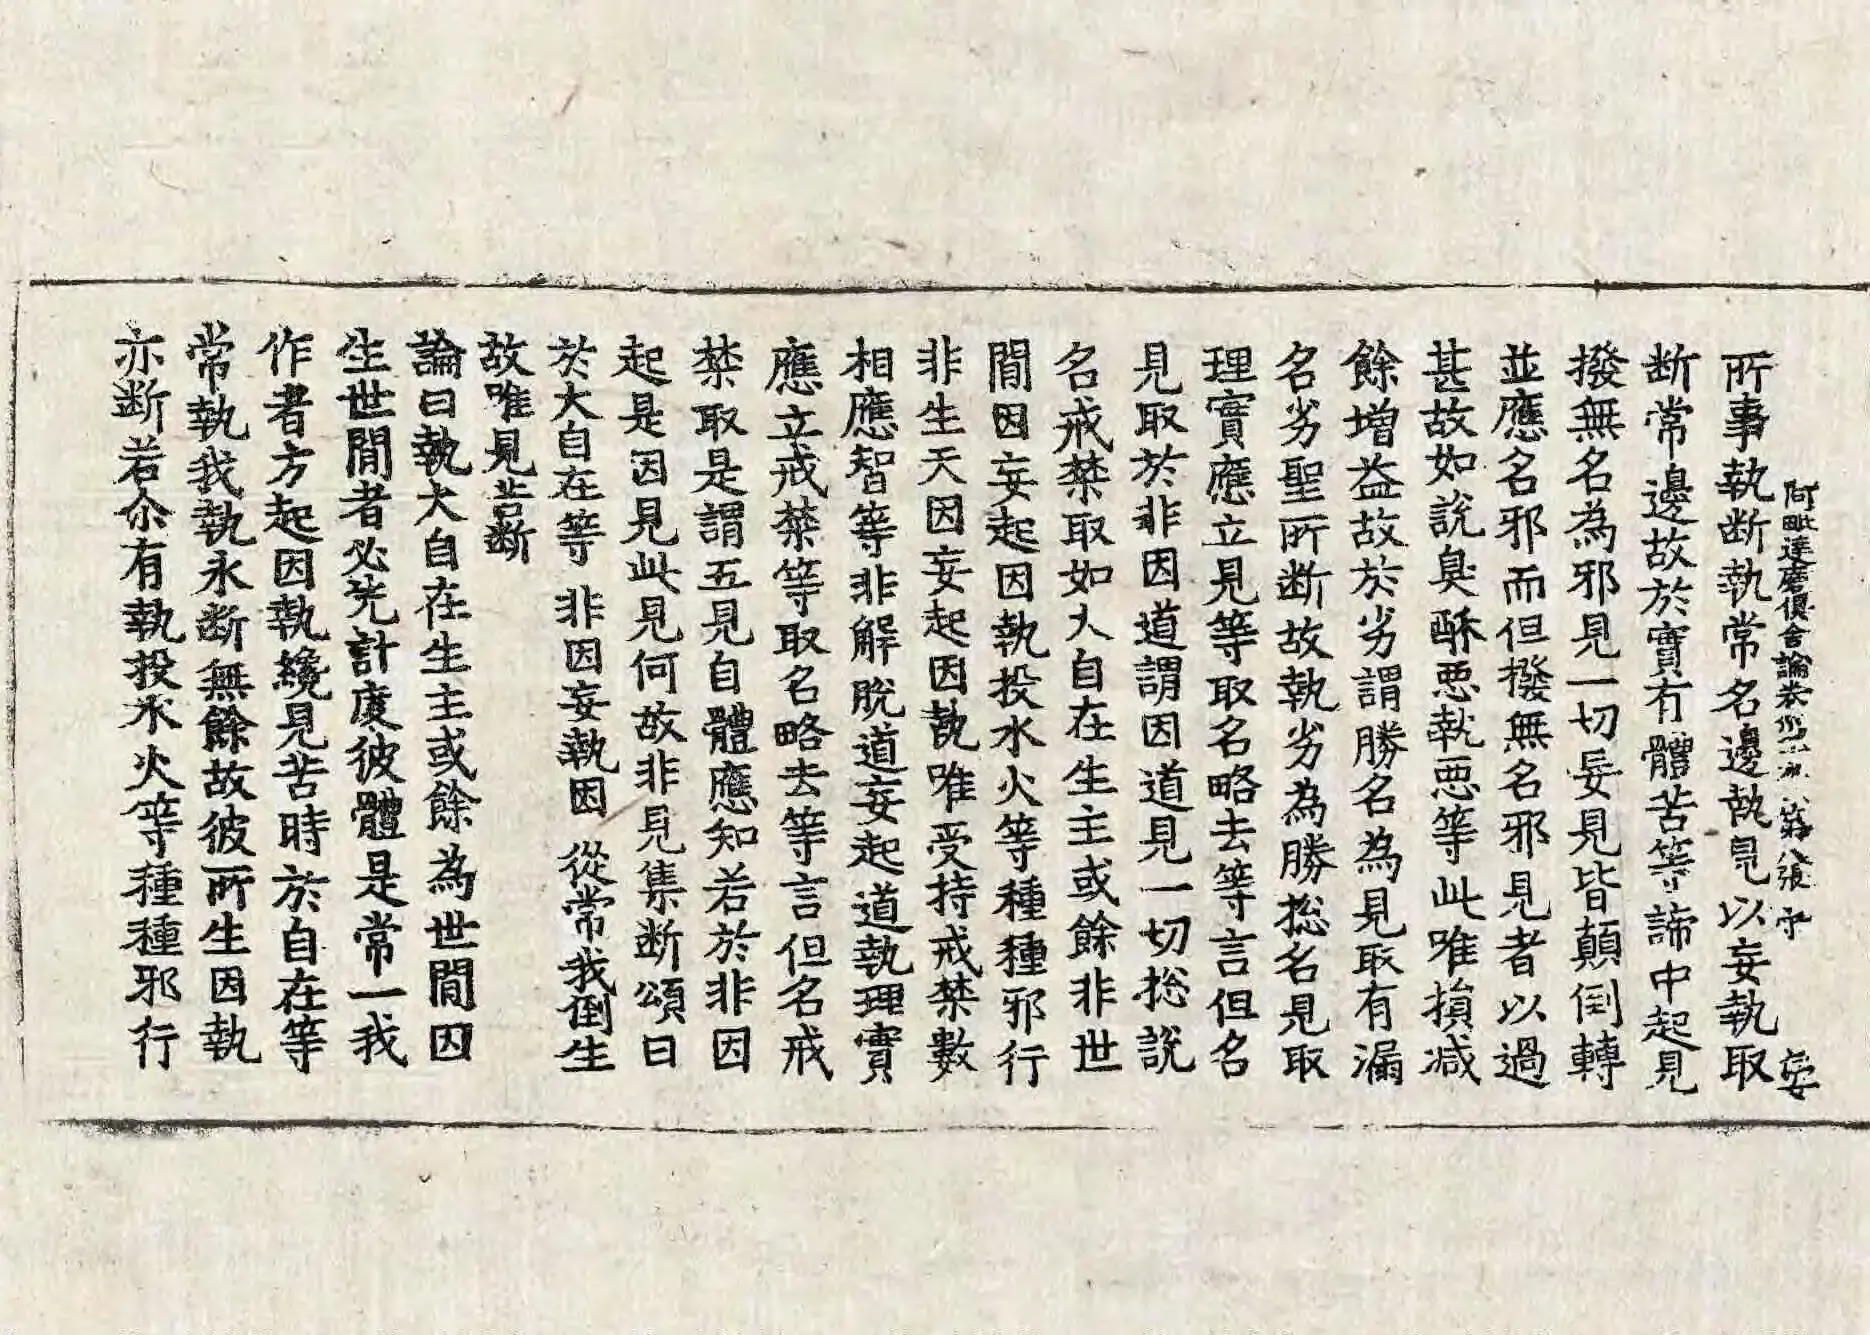 阿毗達磨俱舍論卷 第八張 妄
所事執断執常名邊執見以妄執取
断常邊故於實有體苦等諦中起見
撥無名為邪見一切妄見皆顛倒轉
並應名邪而但撥無名邪見者以過
甚故如說臭酥惡執惡等此唯損减
餘增益故於劣謂勝名為見取有漏
名劣聖所断故執劣為勝捴名見取
理實應立見等取名略去等言但名
見取於非因道謂因道見一切捴說
名戒禁取如大自在生主或餘非世
間因妄起因執投水火等種種邪行
非生天因妄起因執唯受持戒禁數
相應智等非解脫道妄起道執理實
應立戒禁等取名略去等言但名戒
禁取是謂五見自體應知若於非因
起是因見此見何故非見集断頌曰
於大自在等 非因妄執因 從常我倒生
故唯見苦断
論曰執大自在生主或餘為世間因
生世間者必先計度彼體是常一我
作者方起因執纔見苦時於自在等
常執我執永断無餘故彼所生因執
亦断若尒有執投水火等種種邪行